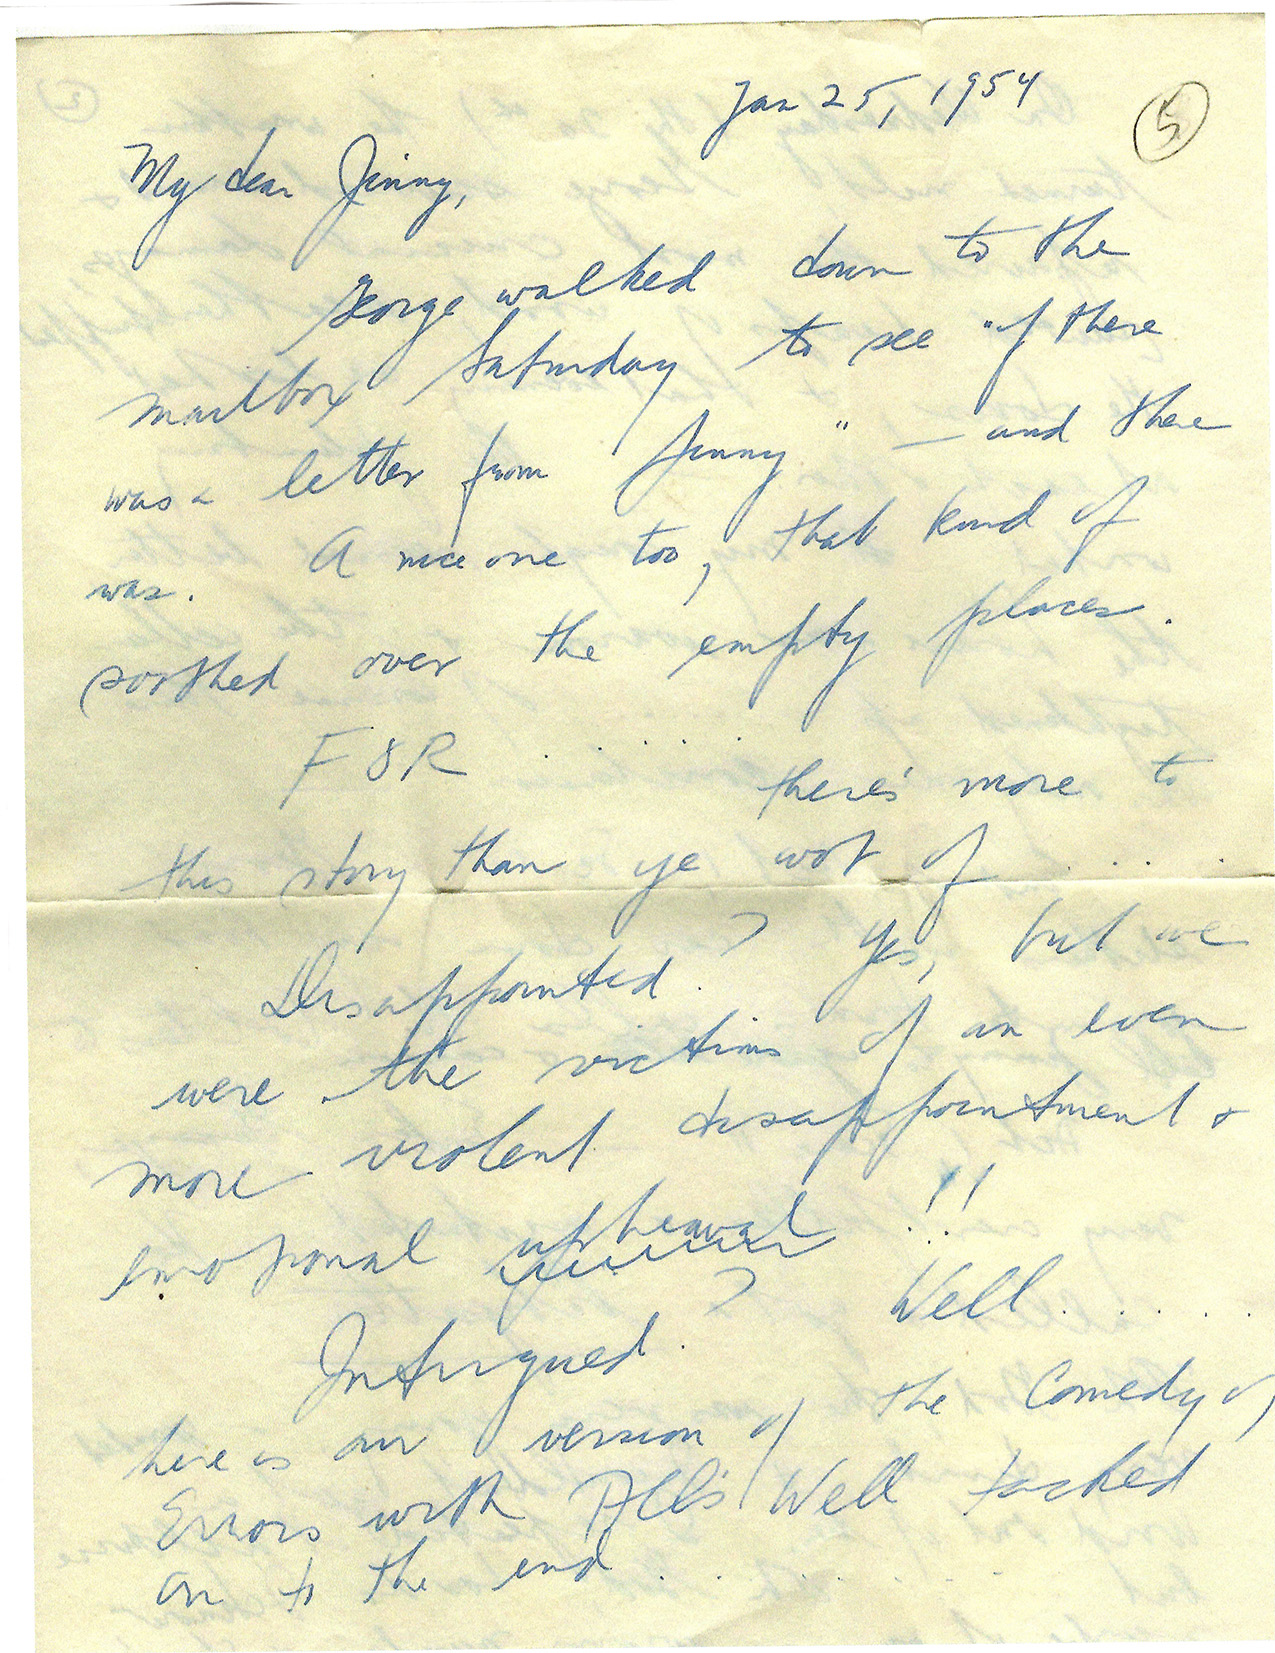 Jan 25, 1954
5
My dear Jinny,
George walked down to the
mailbox Saturday to see "if there
was a letter from Jinny" — and there
was. A nice one too, that kind of
soothed over the empty places.
F & R . . . . . there's more to
this story than ye wot of . . . .
Disappointed? Yes, but we
were the victims of an even
more violent disappointment &
emotional upheaval!!
Intrigued? Well . . . . .
here is our version of the Comedy of
Errors with All's Well tacked
on to the end . . . . . . . .